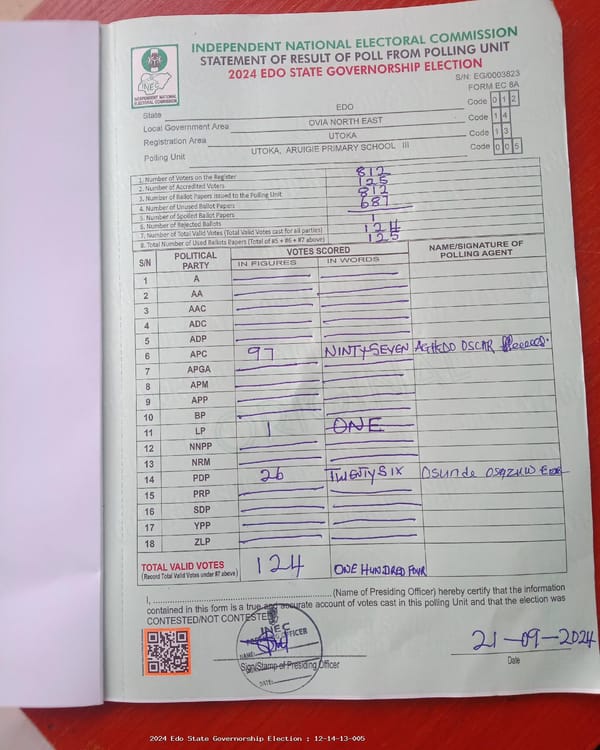 INDEPENDENT NATIONAL ELECTORAL COMMISSION
STATEMENT OF RESULT OF POLL FROM POLLING UNIT
2024 EDO STATE GOVERNORSHIP ELECTION
INEC
INDEPENDENT NATIONAL ELECTORAL COMMISSION
S/N: EG/0003823
FORM EC 8A
State EDO Code 0 1 2
Local Government Area OVIA NORTH EAST Code 1 4
Registration Area UTOKA Code 1 3
Polling Unit UTOKA, ARUIGIE PRIMARY SCHOOL III Code 0 0 5
1. Number of Voters on the Register 812
2. Number of Accredited Voters 125
3. Number of Ballot Papers issued to the Polling Unit 812
4. Number of Unused Ballot Papers 687
5. Number of Spoiled Ballot Papers
6. Number of Rejected Ballots 1
7. Number of Total Valid Votes (Total Valid Votes cast for all parties) 124
8. Total Number of Used Ballots Papers (Total of #5 + #6 + #7 above) 125
S/N POLITICAL PARTY VOTES SCORED NAME/SIGNATURE OF POLLING AGENT
IN FIGURES IN WORDS
1 A
2 AA
3 AAC
4 ADC
5 ADP
6 APC 97 NINTY SEVEN OSCAR
7 APGA
8 APM
9 APP
10 BP
11 LP 1 ONE
12 NNPP
13 NRM
14 PDP 26 TWENTY SIX Osunde
15 PRP
16 SDP
17 YPP
18 ZLP
TOTAL VALID VOTES 124 ONE HUNDRED FOUR
(Record Total Valid Votes under #7 above)
I, (Name of Presiding Officer) hereby certify that the information
contained in this form is a true and accurate account of votes cast in this polling Unit and that the election was
CONTESTED/NOT CONTESTED
INEC
OFFICER
NAME:
DATE:
21-09-2024
Sign/Stamp of Presiding Officer Date
2024 Edo State Governorship Election : 12-14-13-005